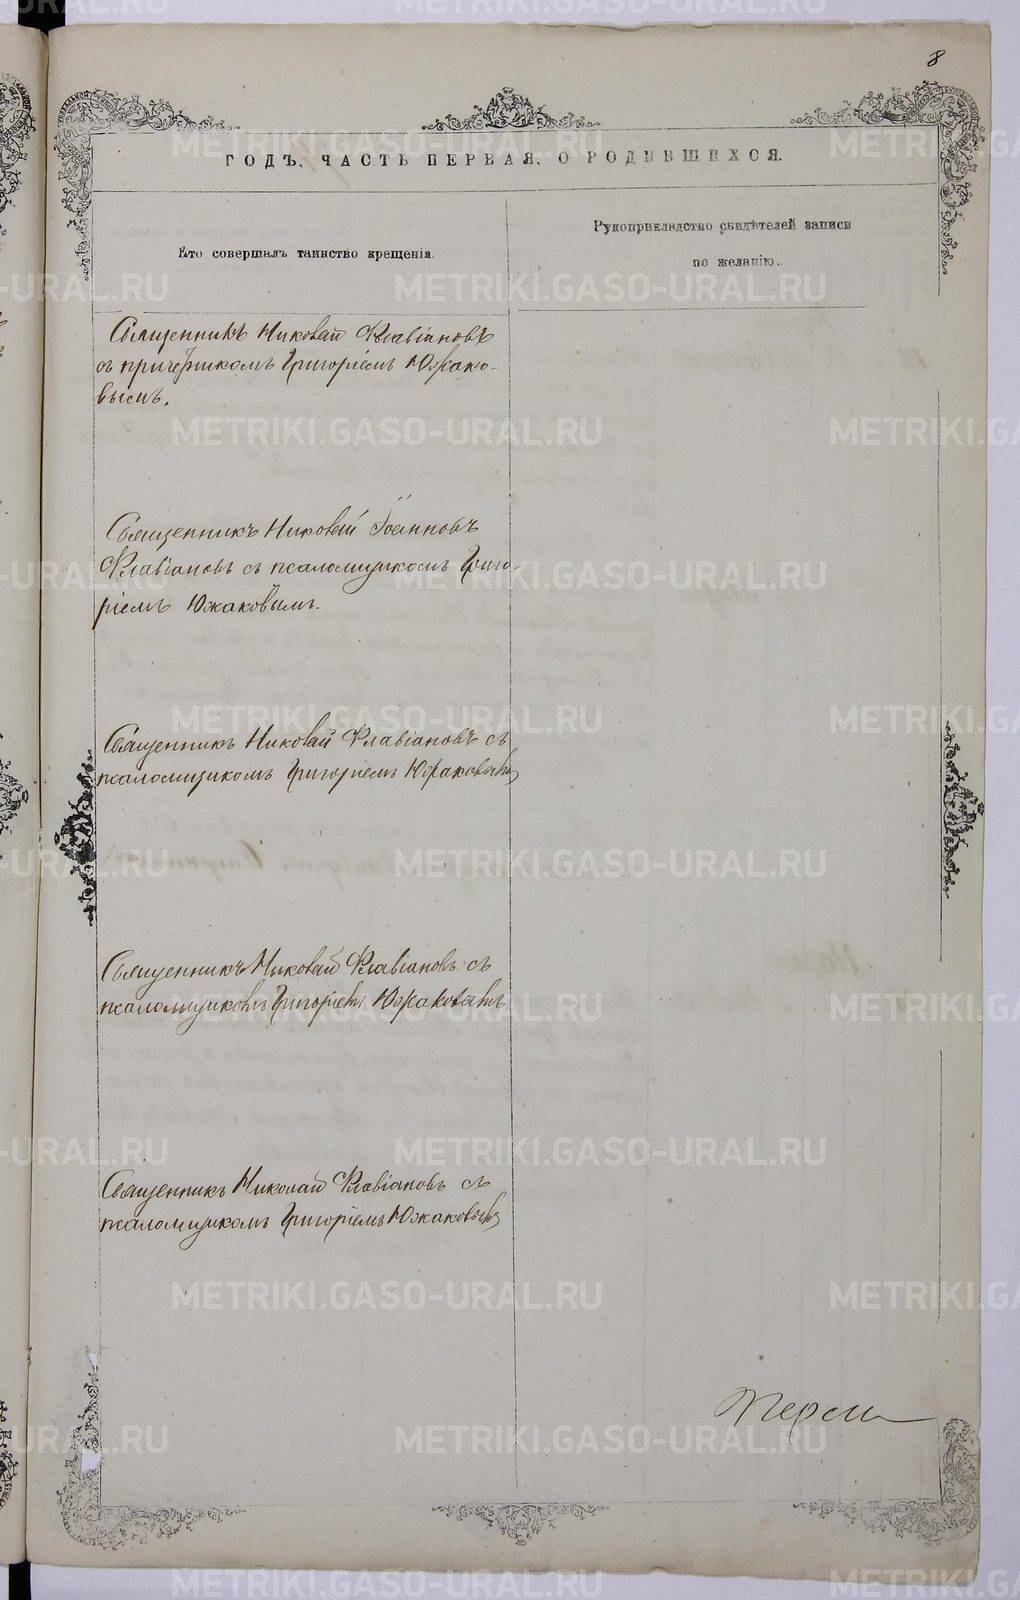 8
ГОДЪ, ЧАСТЬ ПЕРВАЯ, О РОДИВШИХСЯ.
Кто совершалъ таинство крещенія.
Рукоприкладство свидѣтелей записи
по желанію.
Священникъ Николай Флавіановъ
съ причетникомъ Григоріемъ Южако-
вымъ.
Священникъ Николай Іоанновъ
Флавіановъ съ псаломщикомъ Григо-
ріемъ Южаковымъ.
Священникъ Николай Флавіановъ съ
псаломщикомъ Григоріемъ Южаковымъ
Священникъ Николай Флавіановъ съ
псаломщикомъ Григоріемъ Южаковымъ
Священникъ Николай Флавіановъ съ
псаломщикомъ Григоріемъ Южаковымъ
METRIKI.GASO-URAL.RU